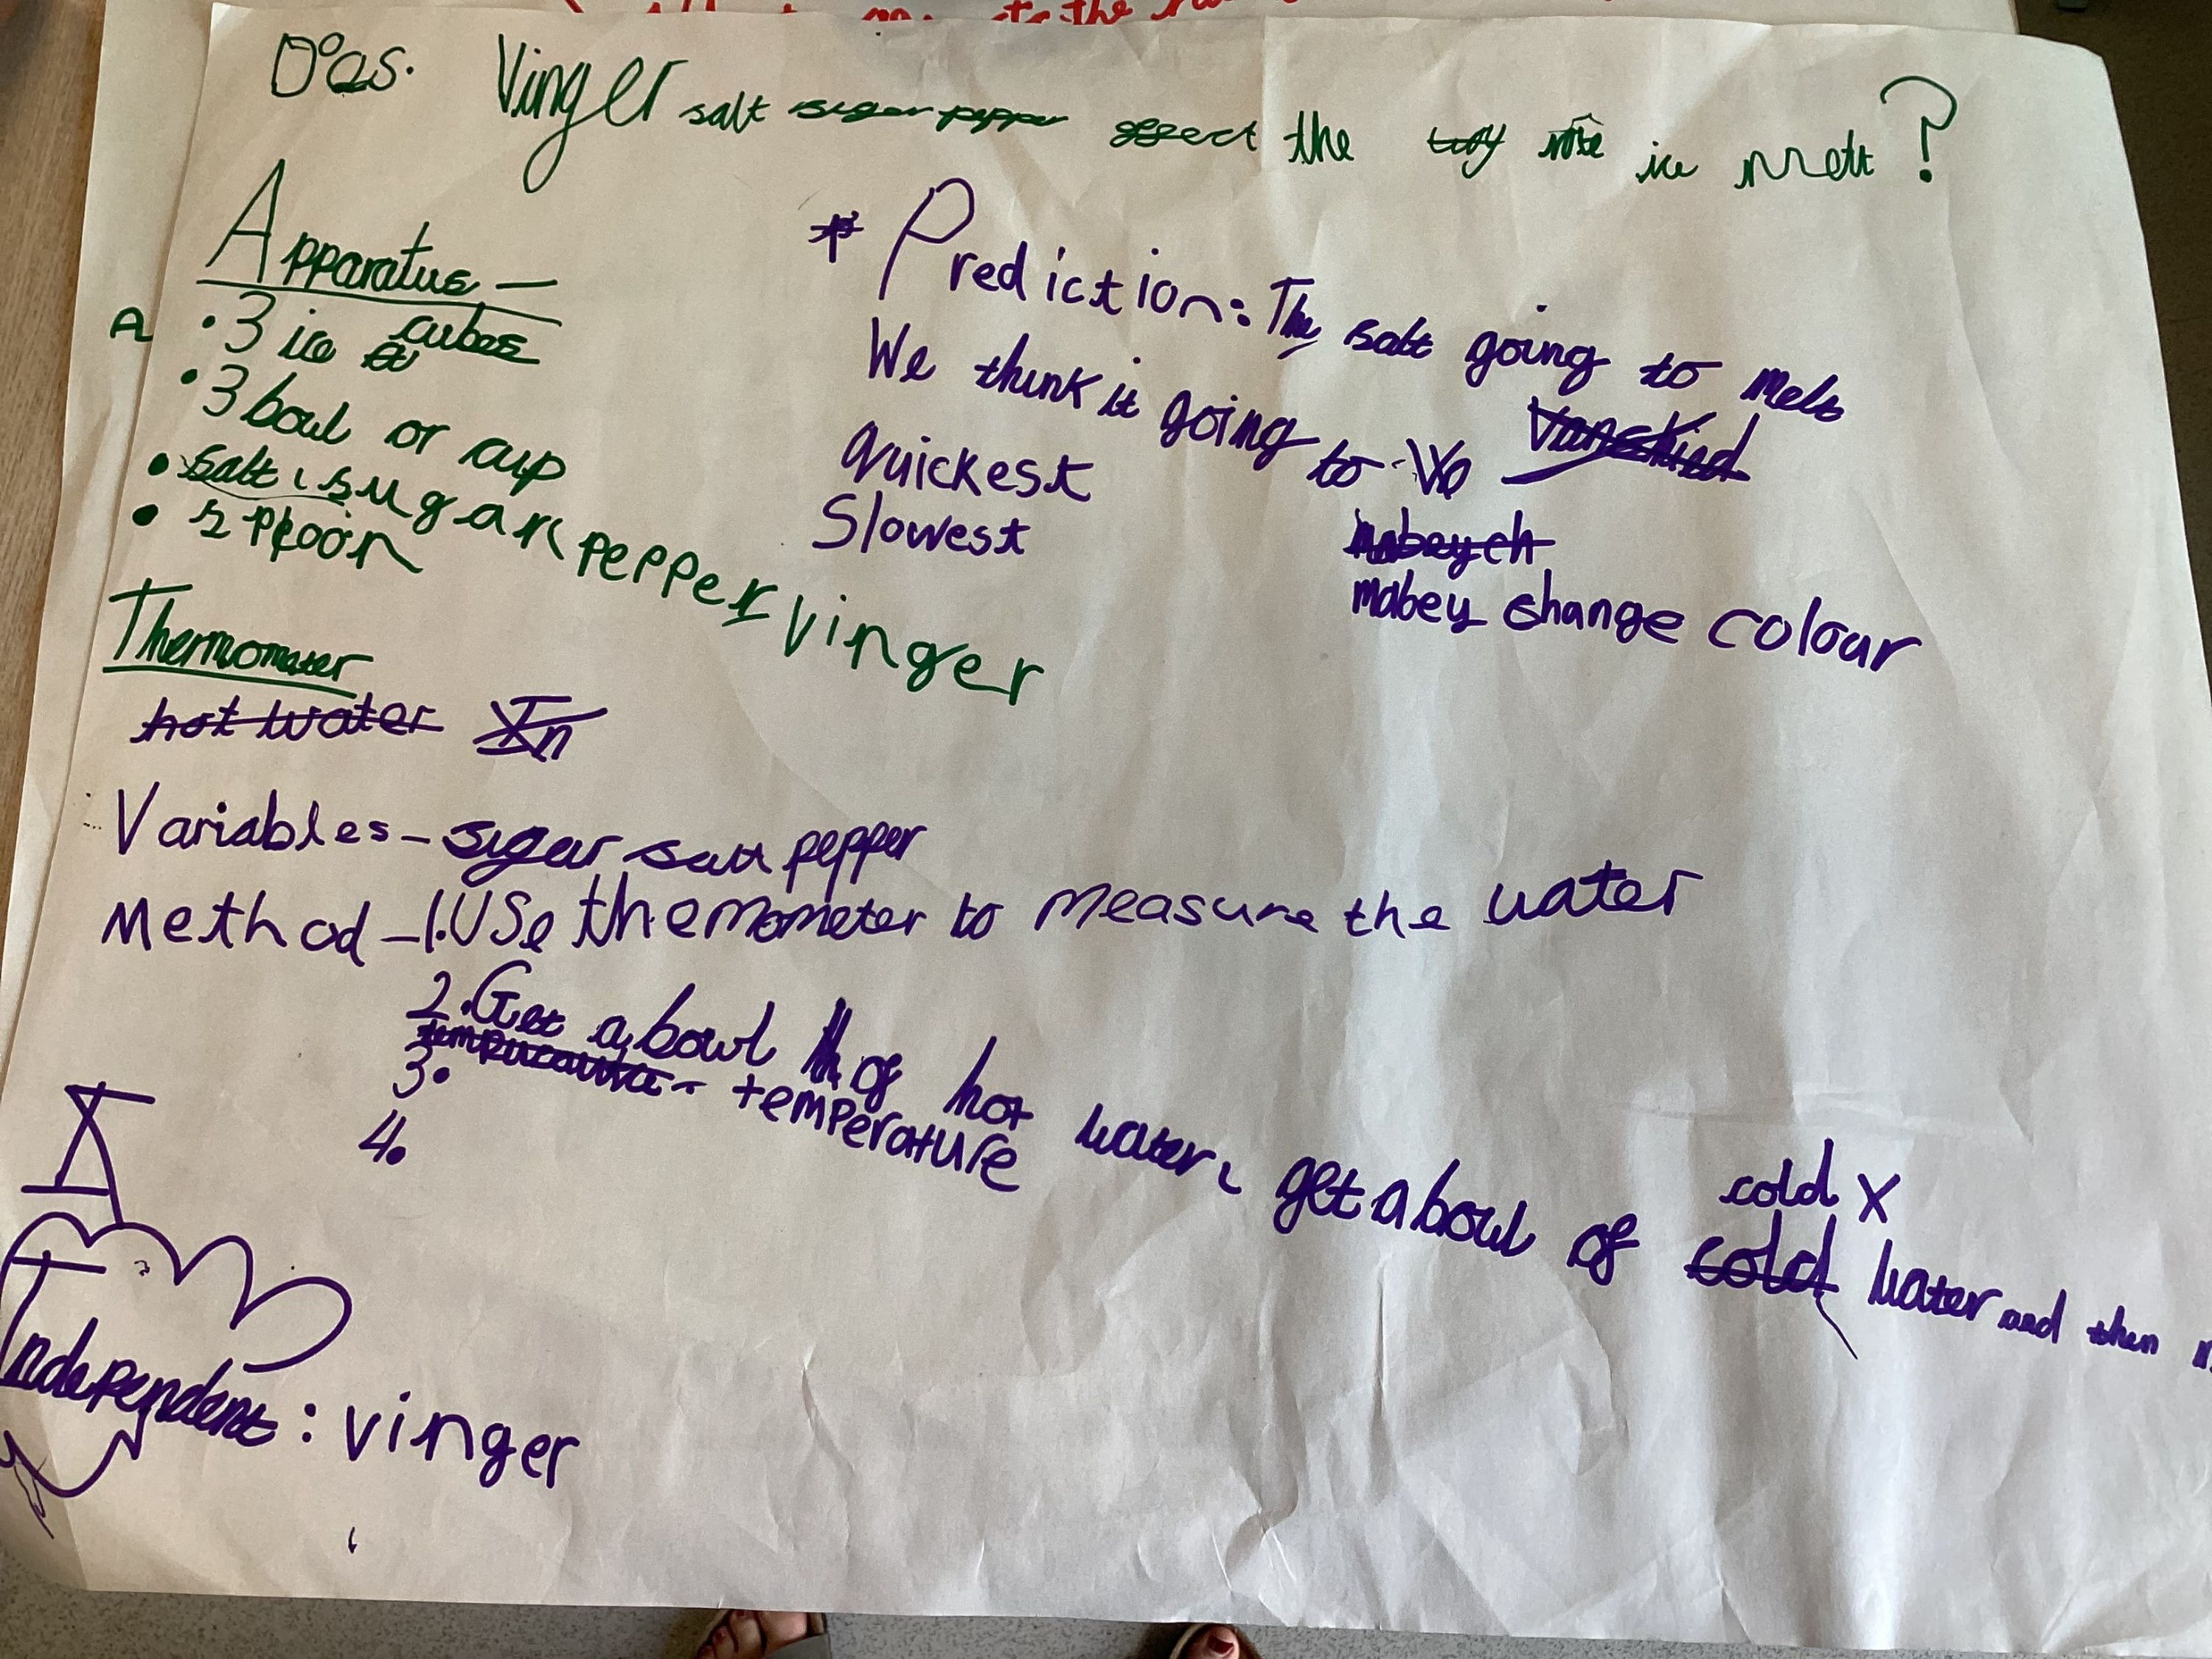 Does. Vinger salt sugar pepper effect the way rate ice melt?
Apparatus —
A
• 3 ice cubes
• 3 bowl or cup
• salt, sugar pepper vinger
• spoon
Thermometer
hot water In
* Prediction: The salt going to melt
We think it going to
Vanshied
quickest
Slowest
mabeych
mabey change colour
Variables - sugar salt pepper
Method - 1. Use themomometer to measure the water
2. Get a bowl of hot water, get a bowl of cold water and then
cold X
3.
temperature
4.
I
Independent: vinger